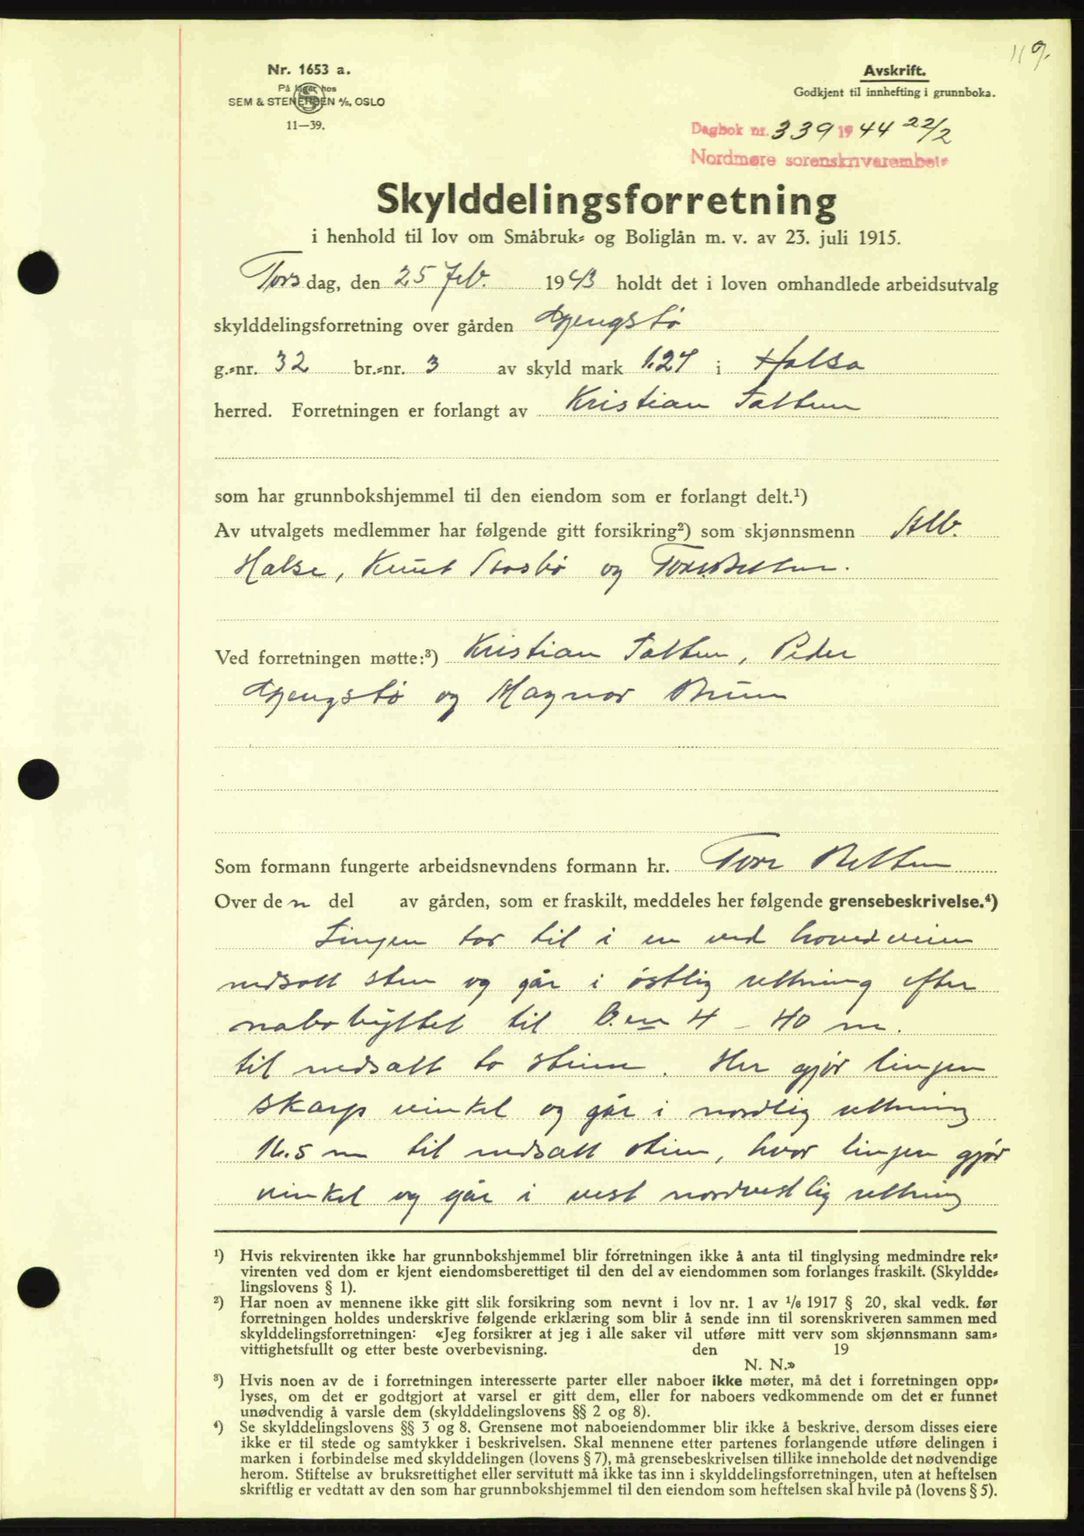 119.
Nr. 1653 a.
På lager hos
SEM & STENERSEN A/S, OSLO
11—39.
Avskrift.
Godkjent til innhefting i grunnboka.
Dagbok nr. 339 1944 22/2
Nordmøre sorenskriverembete
Skylddelingsforretning
i henhold til lov om Småbruk- og Boliglån m. v. av 23. juli 1915.
Torsdag, den 25 Feb. 1943 holdt det i loven omhandlede arbeidsutvalg
skylddelingsforretning over gården Gjengstø
g.-nr. 32 br.-nr. 3 av skyld mark 1.27 i Halsa
herred. Forretningen er forlangt av Kristian
som har grunnbokshjemmel til den eiendom som er forlangt delt.¹)
Av utvalgets medlemmer har følgende gitt forsikring²) som skjønnsmenn Alb.
Halse, Knut og Tore Betten.
Ved forretningen møtte:³) Kristian Peder
Gjengstø og Magnar Bruun
Som formann fungerte arbeidsnevndens formann hr. Tore Betten
Over den del av gården, som er fraskilt, meddeles her følgende grensebeskrivelse.⁴)
Linjen tar til i en ved hovedveien
nedsatt sten og går i østlig retning efter
nabobyttet til B.no 4 - 40 m.
til nedsatt to stene. Her gjør linjen
skarp vinkel og går i nordlig retning
16.5 m til nedsatt sten, hvor linjen gjør
vinkel og går i vest nordvestlig retning
¹) Hvis rekvirenten ikke har grunnbokshjemmel blir forretningen ikke å anta til tinglysing medmindre rek-
virenten ved dom er kjent eiendomsberettiget til den del av eiendommen som forlanges fraskilt. (Skyldde-
lingslovens § 1).
²) Har noen av mennene ikke gitt slik forsikring som nevnt i lov nr. 1 av 1/6 1917 § 20, skal vedk. før
forretningen holdes underskrive følgende erklæring som blir å sende inn til sorenskriveren sammen med
skylddelingsforretningen: «Jeg forsikrer at jeg i alle saker vil utføre mitt verv som skjønnsmann sam-
vittighetsfullt og etter beste overbevisning. den 19
N. N.»
³) Hvis noen av de i forretningen interesserte parter eller naboer ikke møter, må det i forretningen opp-
lyses, om det er godtgjort at varsel er gitt dem, eller for naboers vedkommende om det er funnet
unødvendig å varsle dem (skylddelingslovens §§ 2 og 8).
⁴) Se skylddelingslovens §§ 3 og 8. Grensene mot naboeiendommer blir ikke å beskrive, dersom disses eiere
ikke er til stede og samtykker i beskrivelsen. Skal mennene etter partenes forlangende utføre delingen i
marken i forbindelse med skylddelingen (lovens § 7), må grensebeskrivelsen tillike inneholde det nødvendige
herom. Stiftelse av bruksrettighet eller servitutt må ikke tas inn i skylddelingsforretningen, uten at heftelsen
skriftlig er vedtatt av den som har grunnbokshjemmel til den eiendom som heftelsen skal hvile på (lovens § 5).